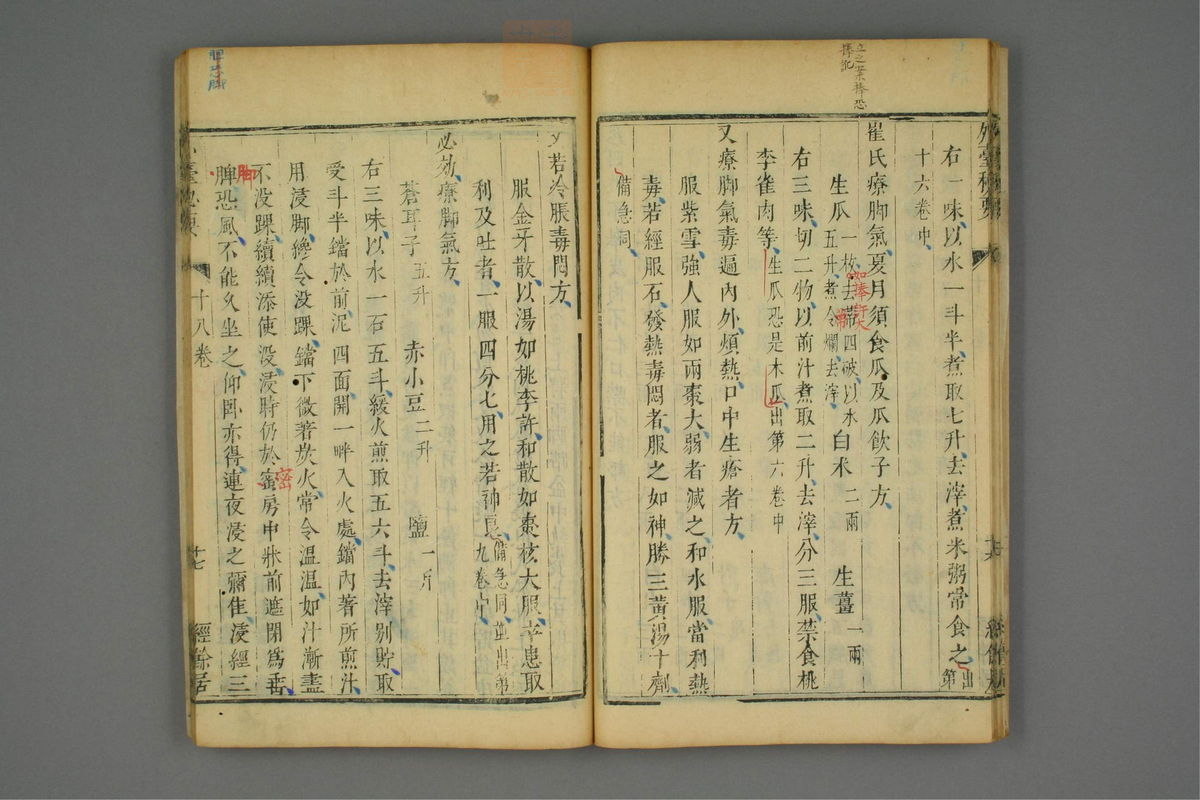 右一味以水一斗半煮取七升去滓煮米粥常食之出第
十六卷中
崔氏療脚氣夏月須食瓜及瓜飲子方
生瓜一枚去帶四破以水五升煮令爛去滓 白术二兩 生薑一兩
右三味切二物以前汁煮取二升去滓分三服禁食桃
李雀肉等生瓜恐是木瓜出第六卷中
又療脚氣毒遍內外煩熱口中生瘡者方
服紫雪強人服如兩棗大弱者減之和水服當利熱
毒若經服石發熱毒悶者服之如神勝三黃湯十劑
備急同
又若冷脹毒悶方
服金牙散以湯如桃李許和散如棗核大服幸患取
利及吐者一服四分七用之若神良備急同並出第九卷中
必効療脚氣方
蒼耳子五升 赤小豆二升 鹽一斤
右三味以水一石五斗緩火煎取五六斗去滓別貯取
受斗半鐺於前泥四面開一畔入火處鐺內著所煎汁
用浸脚纔令没踝鐺下微著炭火常令温温如汁漸盡
不没踝續續添使没浸時仍於蜜房中牀前遮閉爲垂
脾恐風不能久坐之仰臥亦得連夜浸之彌佳浸經三
十八卷
十七
經餘居
密
脚